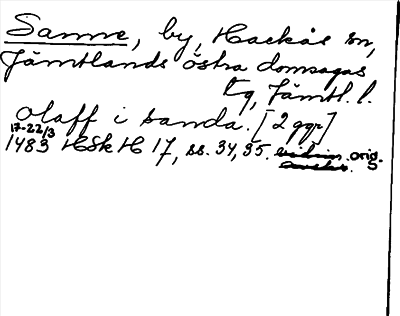 Sanne, by, Hackås sn,
Jämtlands östra domsagas
tg, Jämtl. l.
olaff i sanda. [2 ggr]
17-22/3
1483 HSH 17, ss. 34, 35. orig.